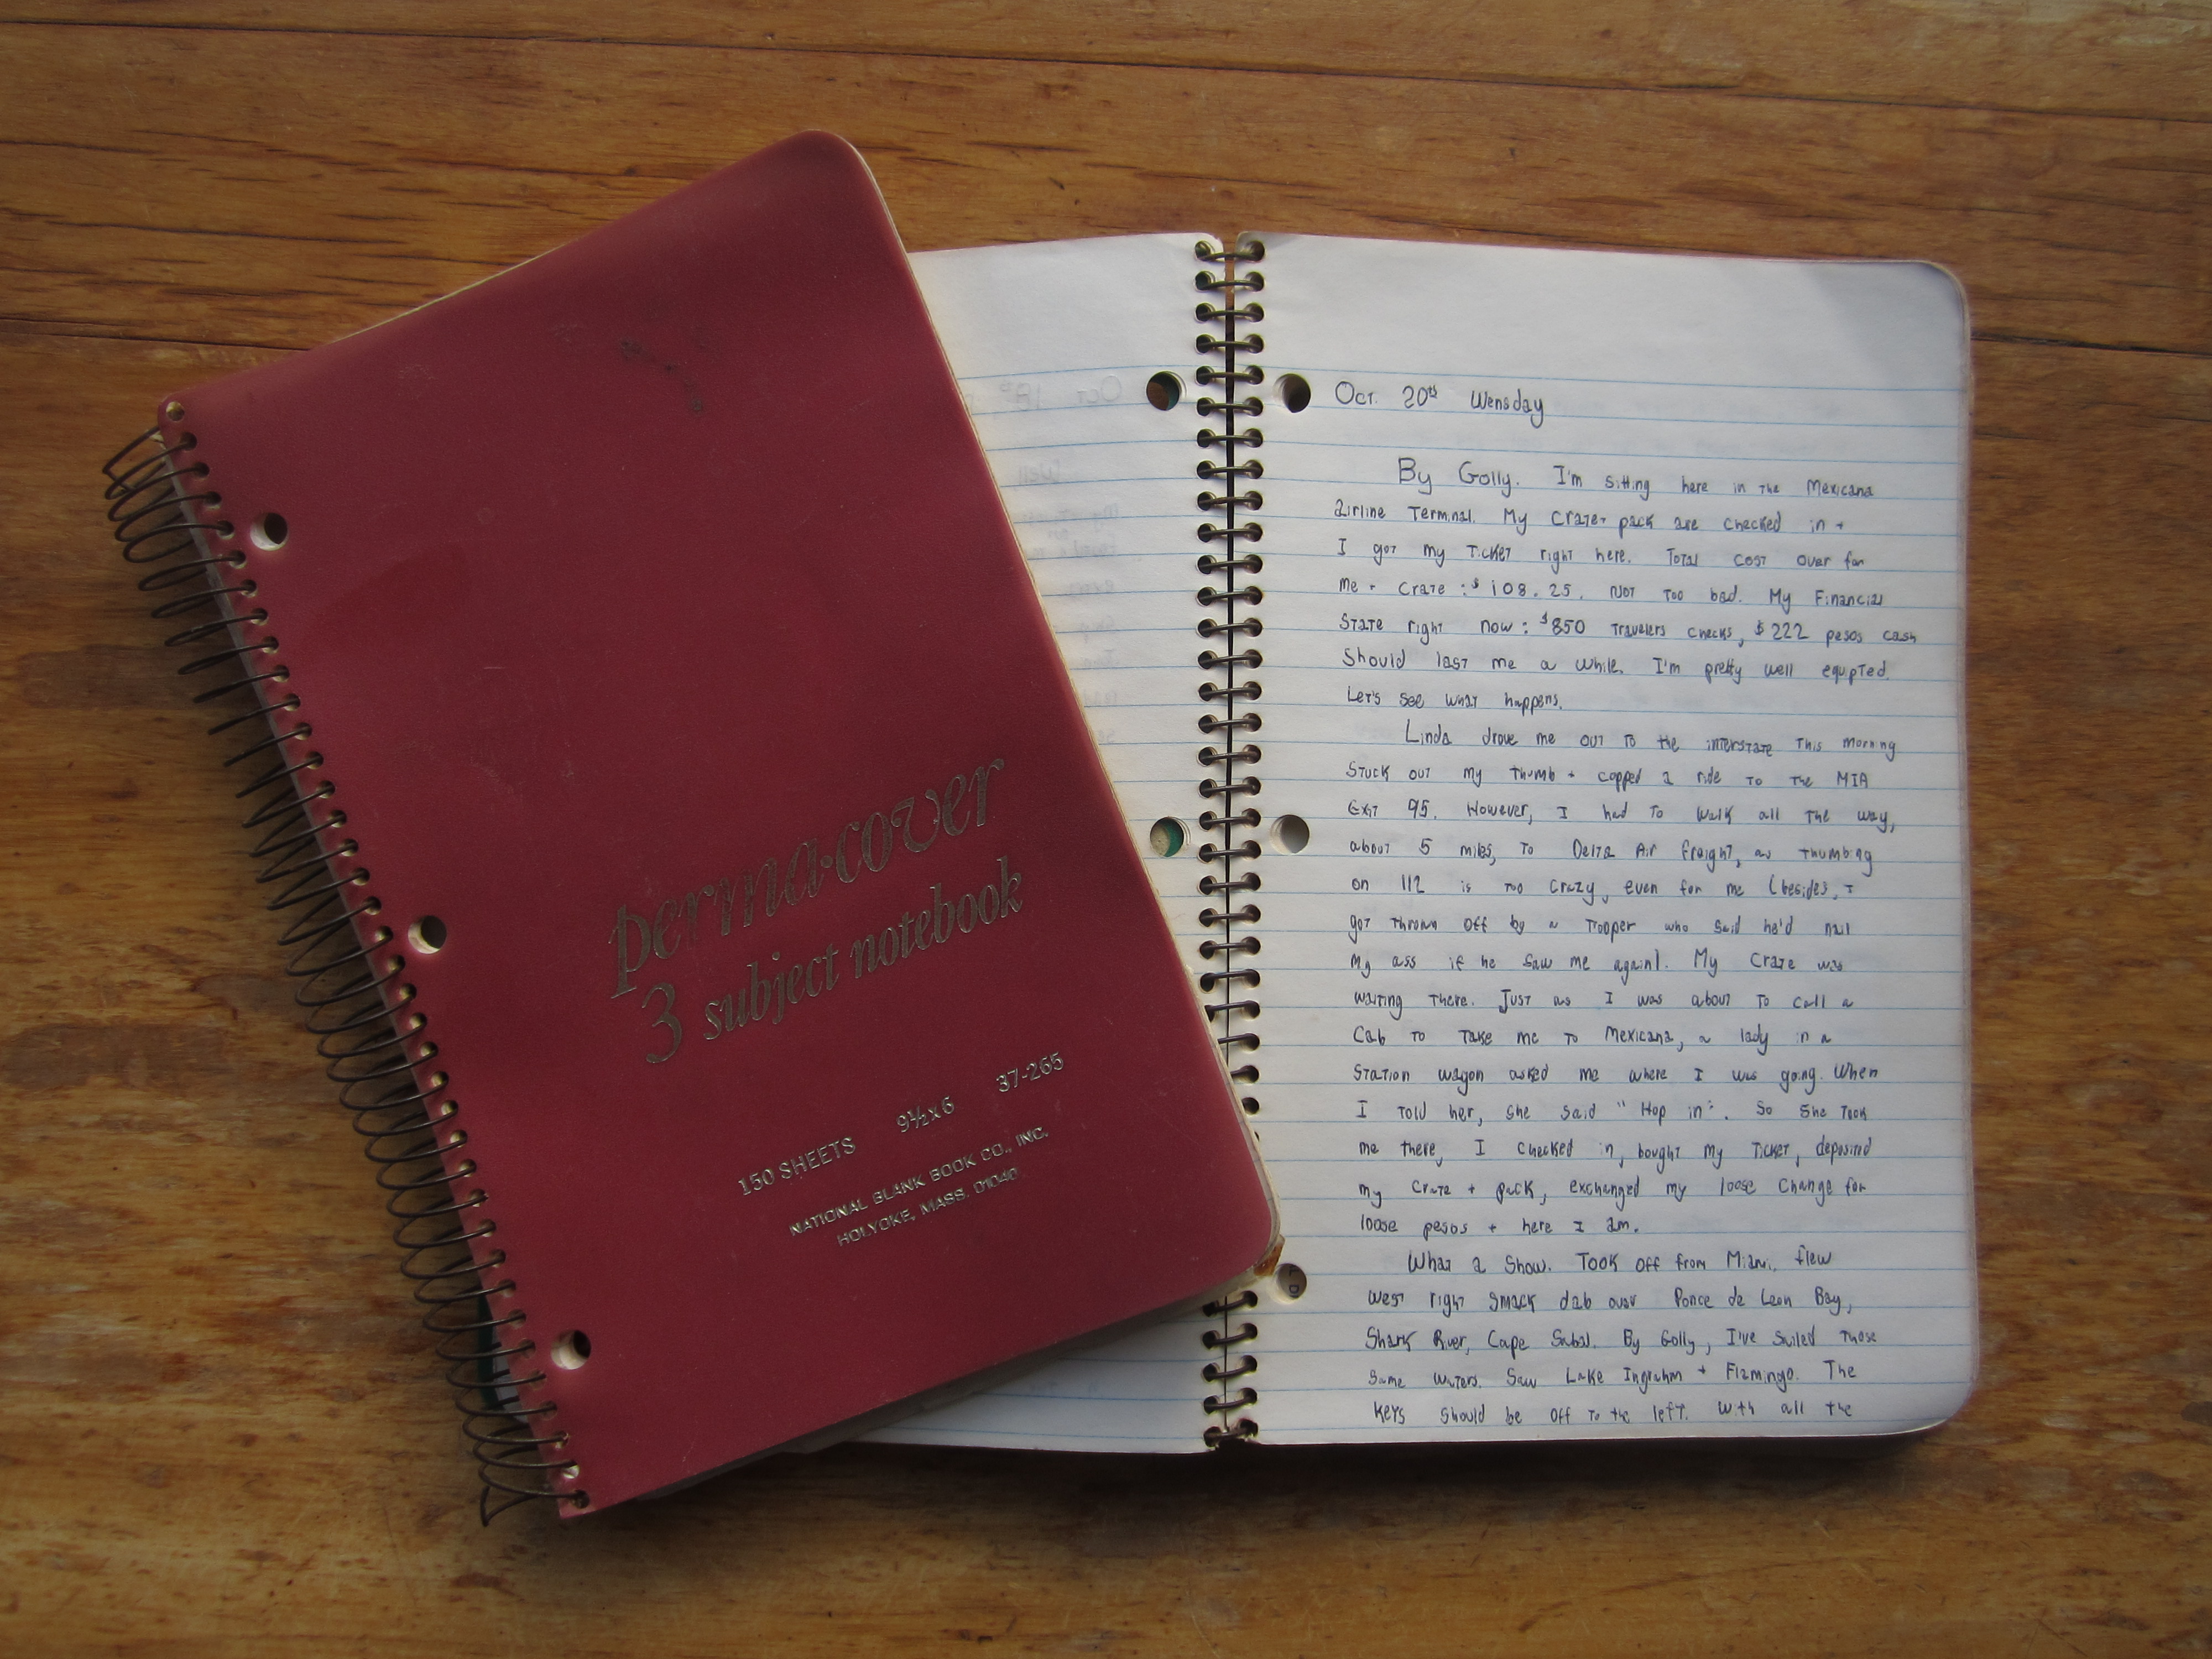 perma·cover
3 subject notebook
150 SHEETS 9½x6 37-265
NATIONAL BLANK BOOK CO., INC.
HOLYOKE, MASS. 01040
Oct. 20th Wensday
By Golly. I'm sitting here in the Mexicana
airline Terminal. My crate + pack are checked in +
I got my ticket right here. Total cost over for
me + crate : $108.25. Not too bad. My Financial
State right now : $850 travelers checks, $222 pesos cash
Should last me a while. I'm pretty well equpted.
Let's see what happens.
Linda drove me out to the interstate this morning
Stuck out my thumb + copped a ride to the MIA
Exit 95. However, I had to walk all the way,
about 5 miles, to Delta Air freight, as thumbing
on 112 is too crazy, even for me (besides, I
got thrown off by a trooper who said he'd nail
my ass if he saw me again). My Crate was
waiting there. Just as I was about to call a
Cab to take me to Mexicana, a lady in a
Station wagon asked me where I was going. When
I told her, she said "Hop in". So she took
me there, I checked in, bought my ticket, deposited
my crate + pack, exchanged my loose change for
loose pesos + here I am.
What a show. Took off from Miami, flew
west right smack dab over Ponce de Leon Bay,
Shark River, Cape Sabal. By Golly, I've sailed those
same waters. Saw Lake Ingrahm + Flamingo. The
Keys should be off to the left. With all the